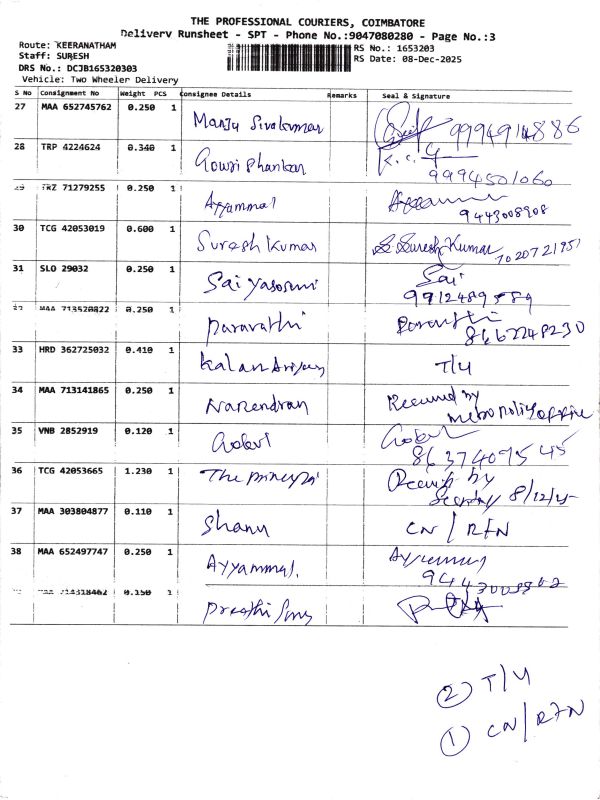 THE PROFESSIONAL COURIERS, COIMBATORE
Delivery Runsheet - SPT - Phone No.:9047080280 - Page No.:3
Route: KEERANATHAM
Staff: SURESH
DRS No.: DCJB165320303
Vehicle: Two Wheeler Delivery
RS No.: 1653203
RS Date: 08-Dec-2025
S No Consignment No Weight PCS Consignee Details Remarks Seal & Signature
27 MAA 652745762 0.250 1 Manju Sivakumar 9994914886
28 TRP 4224624 0.340 1 Gowri Shankar K.C.
9994501060
29 TRZ 71279255 0.250 1 Ayyammal
9443008908
30 TCG 42053019 0.600 1 Suresh Kumar S. Suresh Kumar 7020721951
31 SLO 29032 0.250 1 Sai Yasoswi Sai
9912489589
32 MAA 713520822 0.250 1 Paravathi
8667248230
33 HRD 362725032 0.410 1 T/4
34 MAA 713141865 0.250 1 Narendran Received by
office
35 VNB 2852919 0.120 1
8637409545
36 TCG 42053665 1.230 1 The by
8/12/25
37 MAA 303804877 0.110 1 Shanu CN / RTN
38 MAA 652497747 0.250 1 Ayyammal.
39 MAA 714318462 0.150 1
② T/4
① CN/RTN